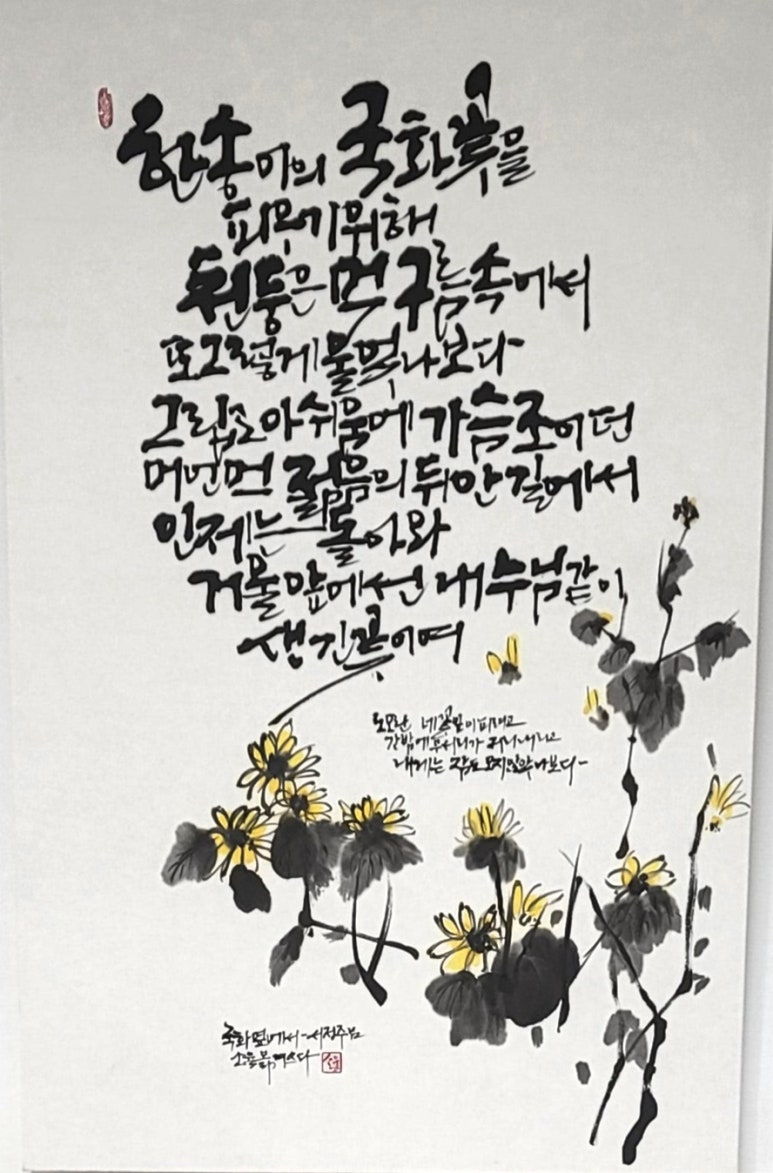 한송이의 국화꽃을
피우기위해
천둥은 먹구름속에서
또그렇게 울었나보다
그립고 아쉬움에 가슴조이던
머언먼 젊음의 뒤안길에서
인제는 돌아와
거울앞에선 내 누님같이
생긴꽃이여
노오란 네꽃잎이 피려고
간밤에 무서리가 저리 내리고
내게는 잠도 오지 않았나보다
국화옆에서 - 서정주님
쓰다